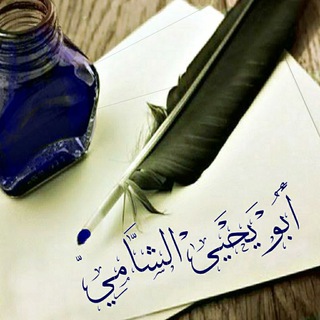 أَبُو يَحْيَى الشَّامِيّ